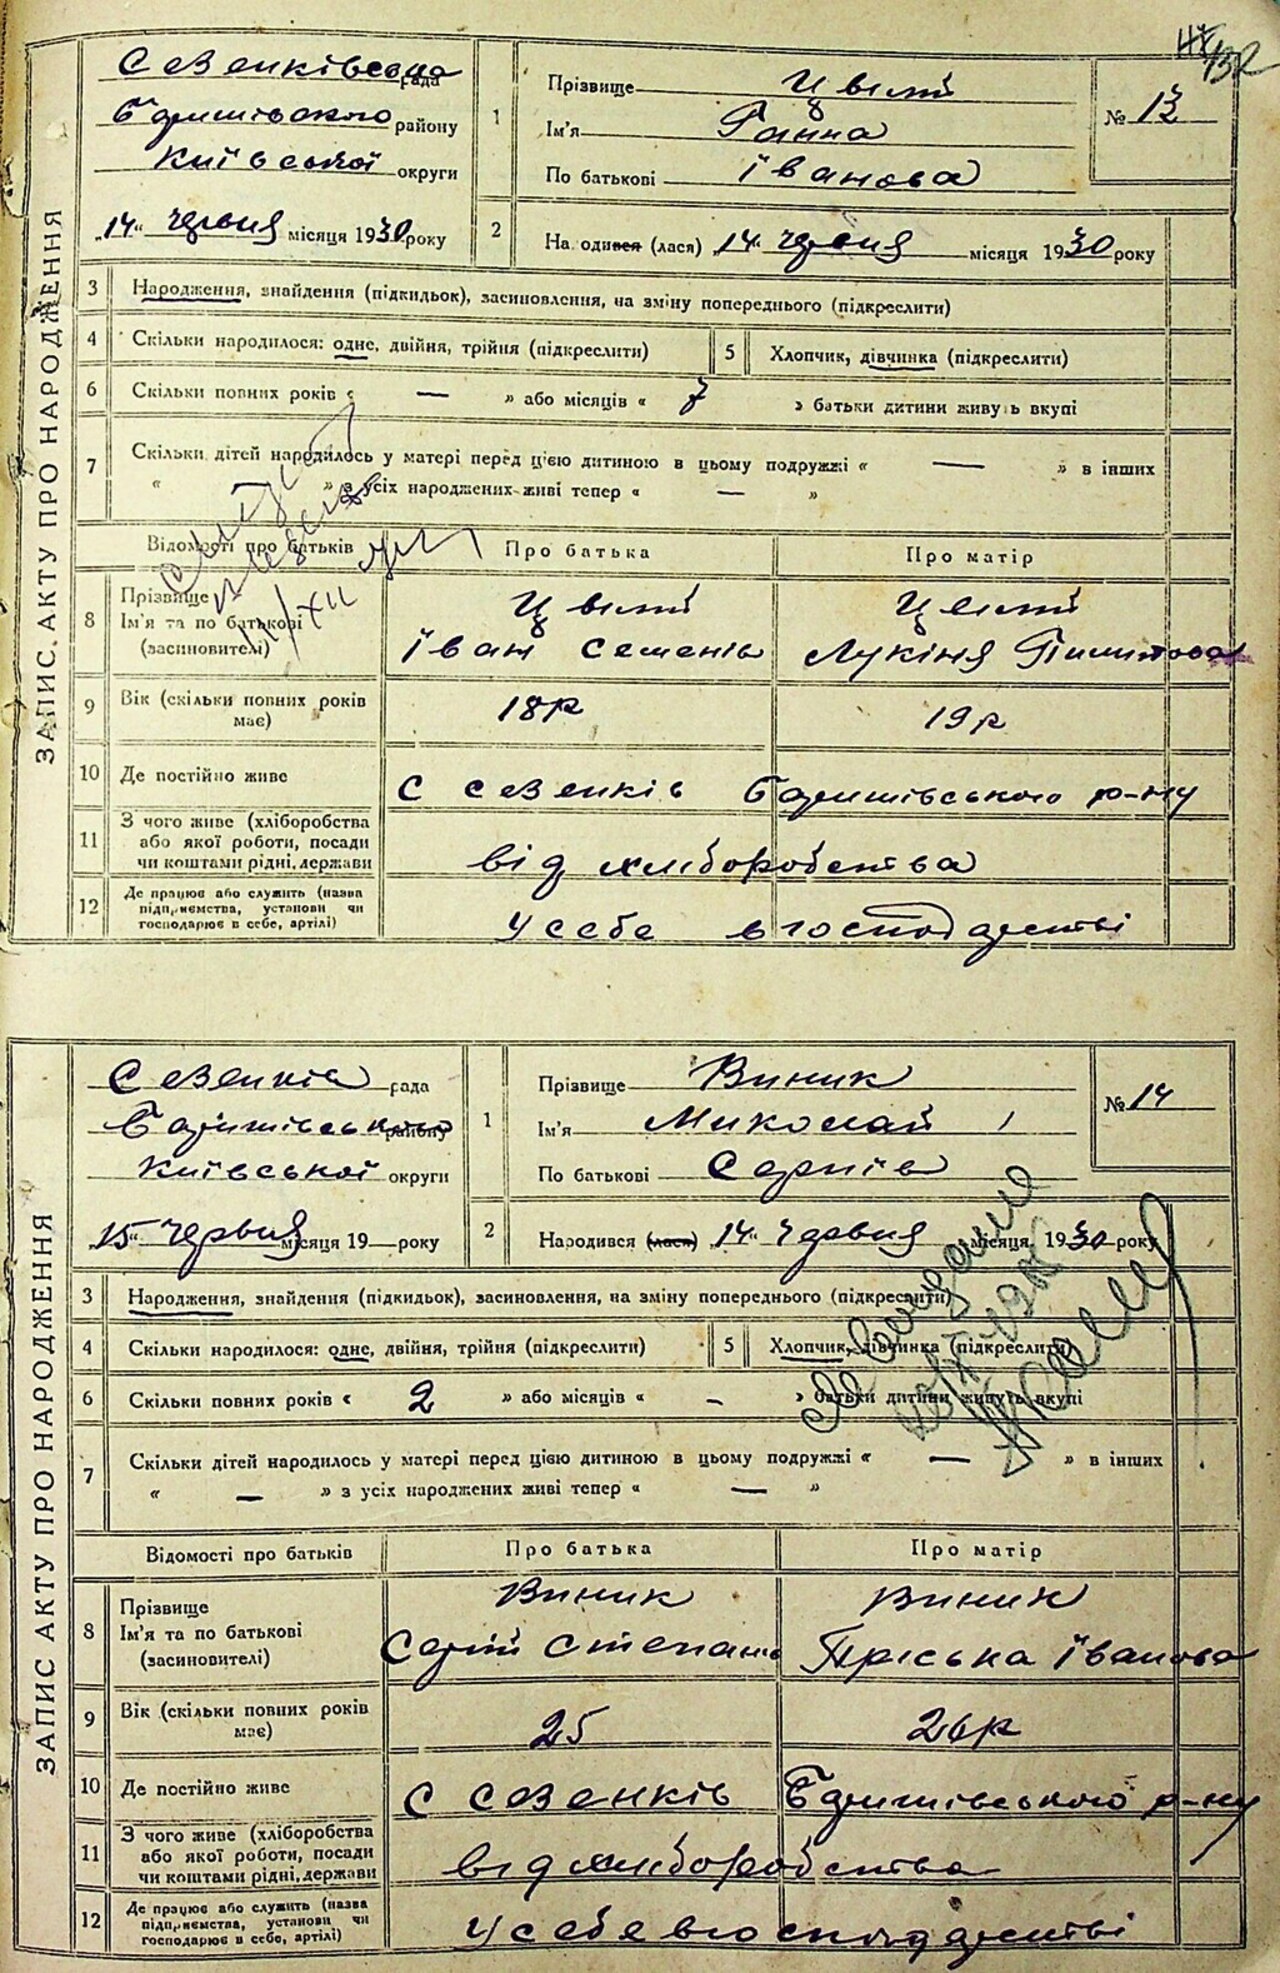 132
ЗАПИС АКТУ ПРО НАРОДЖЕННЯ
Сезенківська рада
Баришівського району
Київської округи
„14“ червня місяця 1930 року
1
Прізвище Цвіт
Ім'я Ганна
По батькові Іванова
№ 13
2
На одився (лася) „14“ червня місяця 1930 року
3 Народження, знайдення (підкидьок), засиновлення, на зміну попереднього (підкреслити)
4 Скільки народилося: одне, двійня, трійня (підкреслити) 5 Хлопчик, дівчинка (підкреслити)
6 Скільки повних років « — » або місяців « 7 » батьки дитини живуть вкупі
7 Скільки дітей народилось у матері перед цією дитиною в цьому подружжі « — » в інших
« » з усіх народжених живі тепер « — »
Відомості про батьків Про батька Про матір
8 Прізвище Цвіт Цвіт
Ім'я та по батькові Іван Семенів Лукіня
(засиновителі)
9 Вік (скільки повних років має) 18р 19р
10 Де постійно живе с Сезенків Баришівського р-ну
11 З чого живе (хліборобства
або якої роботи, посади
чи коштами рідні, держави від хліборобства
12 Де працює або служить (назва
підприємства, установи чи
господарює в себе, артілі) у себе в господарстві
ЗАПИС АКТУ ПРО НАРОДЖЕННЯ
Сезенків рада
Баришівського району
Київської округи
„15“ червня місяця 19— року
1
Прізвище Виник
Ім'я Миколай
По батькові Сергіїв
№ 14
2
Народився (лася) „14“ червня місяця 1930 року
3 Народження, знайдення (підкидьок), засиновлення, на зміну попереднього (підкреслити)
4 Скільки народилося: одне, двійня, трійня (підкреслити) 5 Хлопчик, дівчинка (підкреслити)
6 Скільки повних років « 2 » або місяців « - » батьки дитини живуть вкупі
7 Скільки дітей народилось у матері перед цією дитиною в цьому подружжі « — » в інших
« — » з усіх народжених живі тепер « — »
Відомості про батьків Про батька Про матір
8 Прізвище Виник Виник
Ім'я та по батькові Сергій Степанів Пріська Іванова
(засиновителі)
9 Вік (скільки повних років має) 25 26р
10 Де постійно живе с Сезенків Баришівського р-ну
11 З чого живе (хліборобства
або якої роботи, посади
чи коштами рідні, держави від хліборобства
12 Де працює або служить (назва
підприємства, установи чи
господарює в себе, артілі) у себе в господарстві